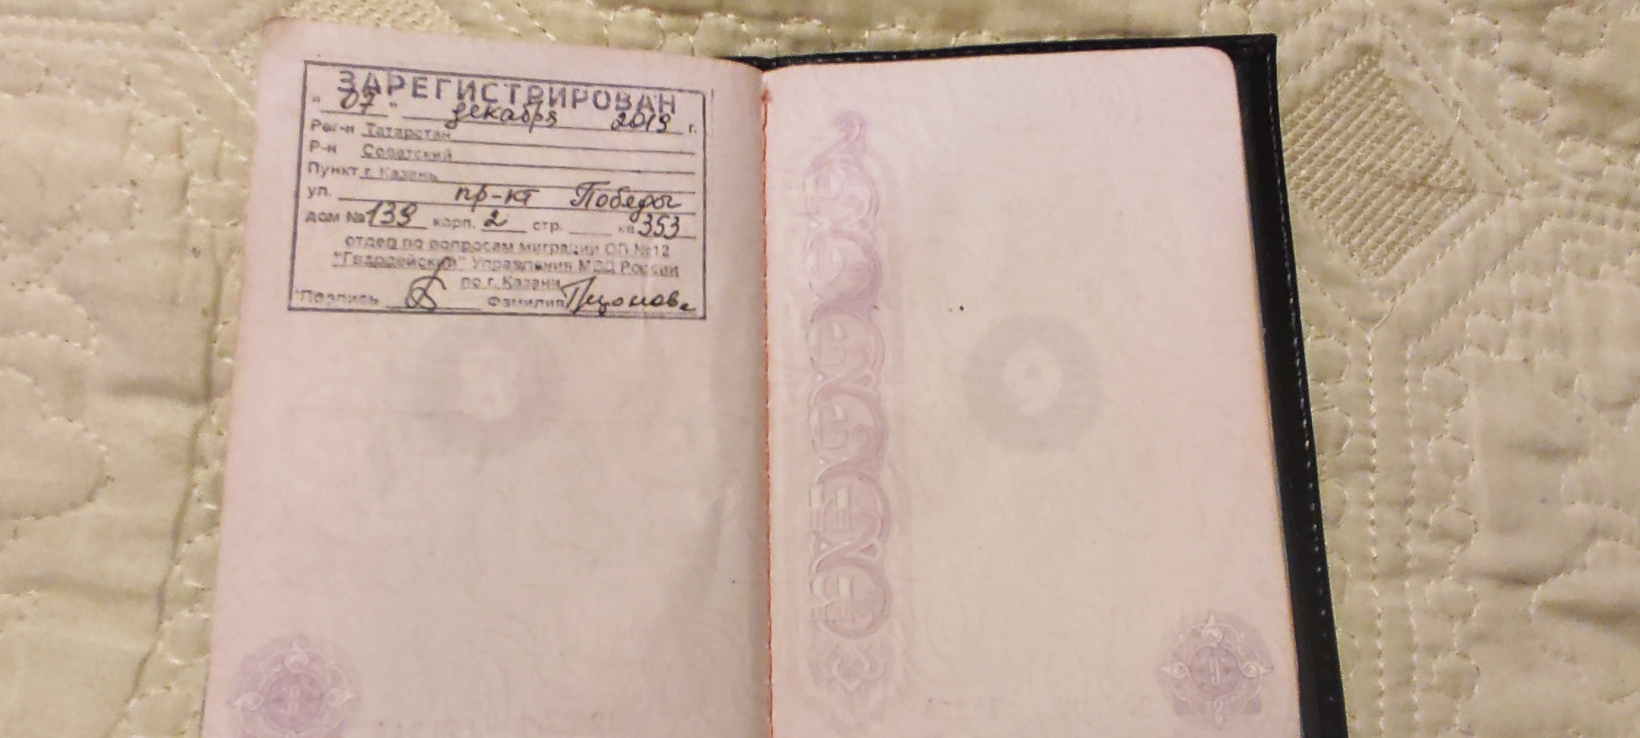 ЗАРЕГИСТРИРОВАН
"07" декабря 2018 г.
Рег-н Татарстан
Р-н Советский
Пункт г. Казань
ул. пр-кт Победа
дом № 139 корп. 2 стр. кв 353
отдел по вопросам миграции ОП №12
"Гвардейский" Управления МВД России
по г. Казани
Подпись Фамилия